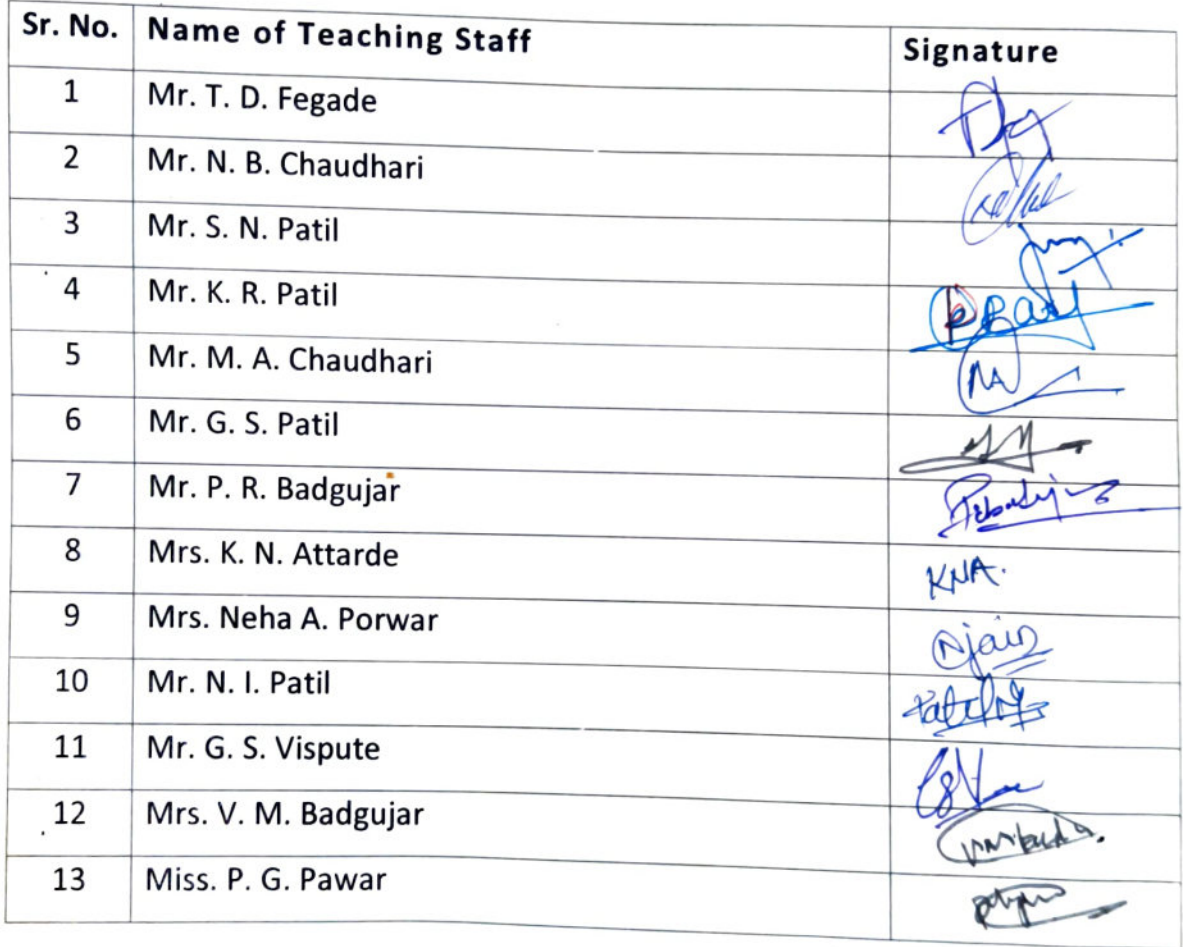 Sr. No. Name of Teaching Staff Signature
1 Mr. T. D. Fegade
2 Mr. N. B. Chaudhari
3 Mr. S. N. Patil
4 Mr. K. R. Patil
5 Mr. M. A. Chaudhari
6 Mr. G. S. Patil
7 Mr. P. R. Badgujar
8 Mrs. K. N. Attarde KNA.
9 Mrs. Neha A. Porwar Njain
10 Mr. N. I. Patil
11 Mr. G. S. Vispute
12 Mrs. V. M. Badgujar
13 Miss. P. G. Pawar